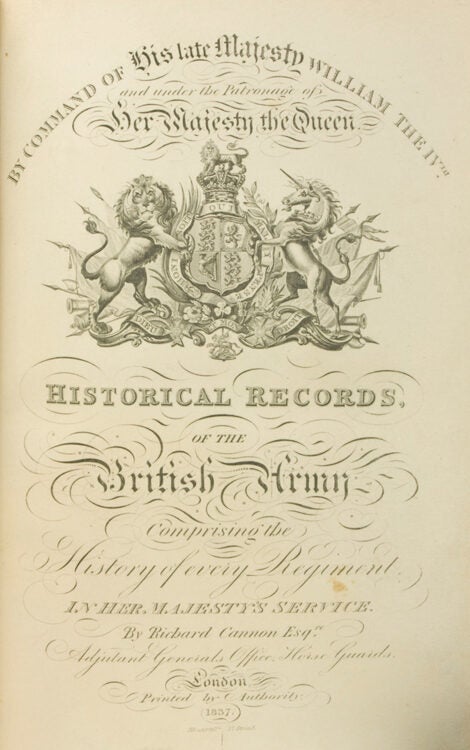 BY COMMAND OF His late Majesty WILLIAM THE IV.
and under the Patronage of
Her Majesty the Queen.
HISTORICAL RECORDS,
OF THE
British Army
Comprising the
History of every Regiment
IN HER MAJESTY'S SERVICE.
By Richard Cannon Esqre.
Adjutant Generals Office, Horse Guards.
London
Printed by Authority.
1837.